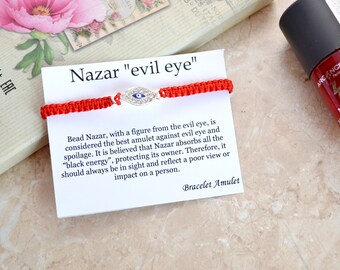 Nazar "evil eye"
Bead Nazar, with a figure from the evil eye, is
considered the best amulet against evil eye and
spoilage. It is believed that Nazar absorbs all the
"black energy", protecting its owner. Therefore, it
should always be in sight and reflect a poor view or
impact on a person.
Bracelet Amulet